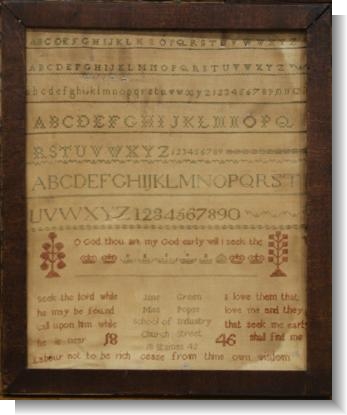 ABCDEFGHIJKLMNOPQRSTUVWXYZ
ABCDEFGHIJKLMNOPQRSTUVWXYZ
abcdefghijklmnopqrstuvwxyz1234567891011
ABCDEFGHIJKLMNOPQ
RSTUVWXYZ123456789
ABCDEFGHIJKLMNOPQRST
UVWXYZ1234567890
O God thou art my God early will i seek the
seek the lord while
he may be found
call upon him while
he is near 18
Jane Green
Miss Popes
school of Industry
Church Street
St James 42
i love them that
love me and they
that seek me early
46 shall find me
Labour not to be rich cease from thine own wisdom